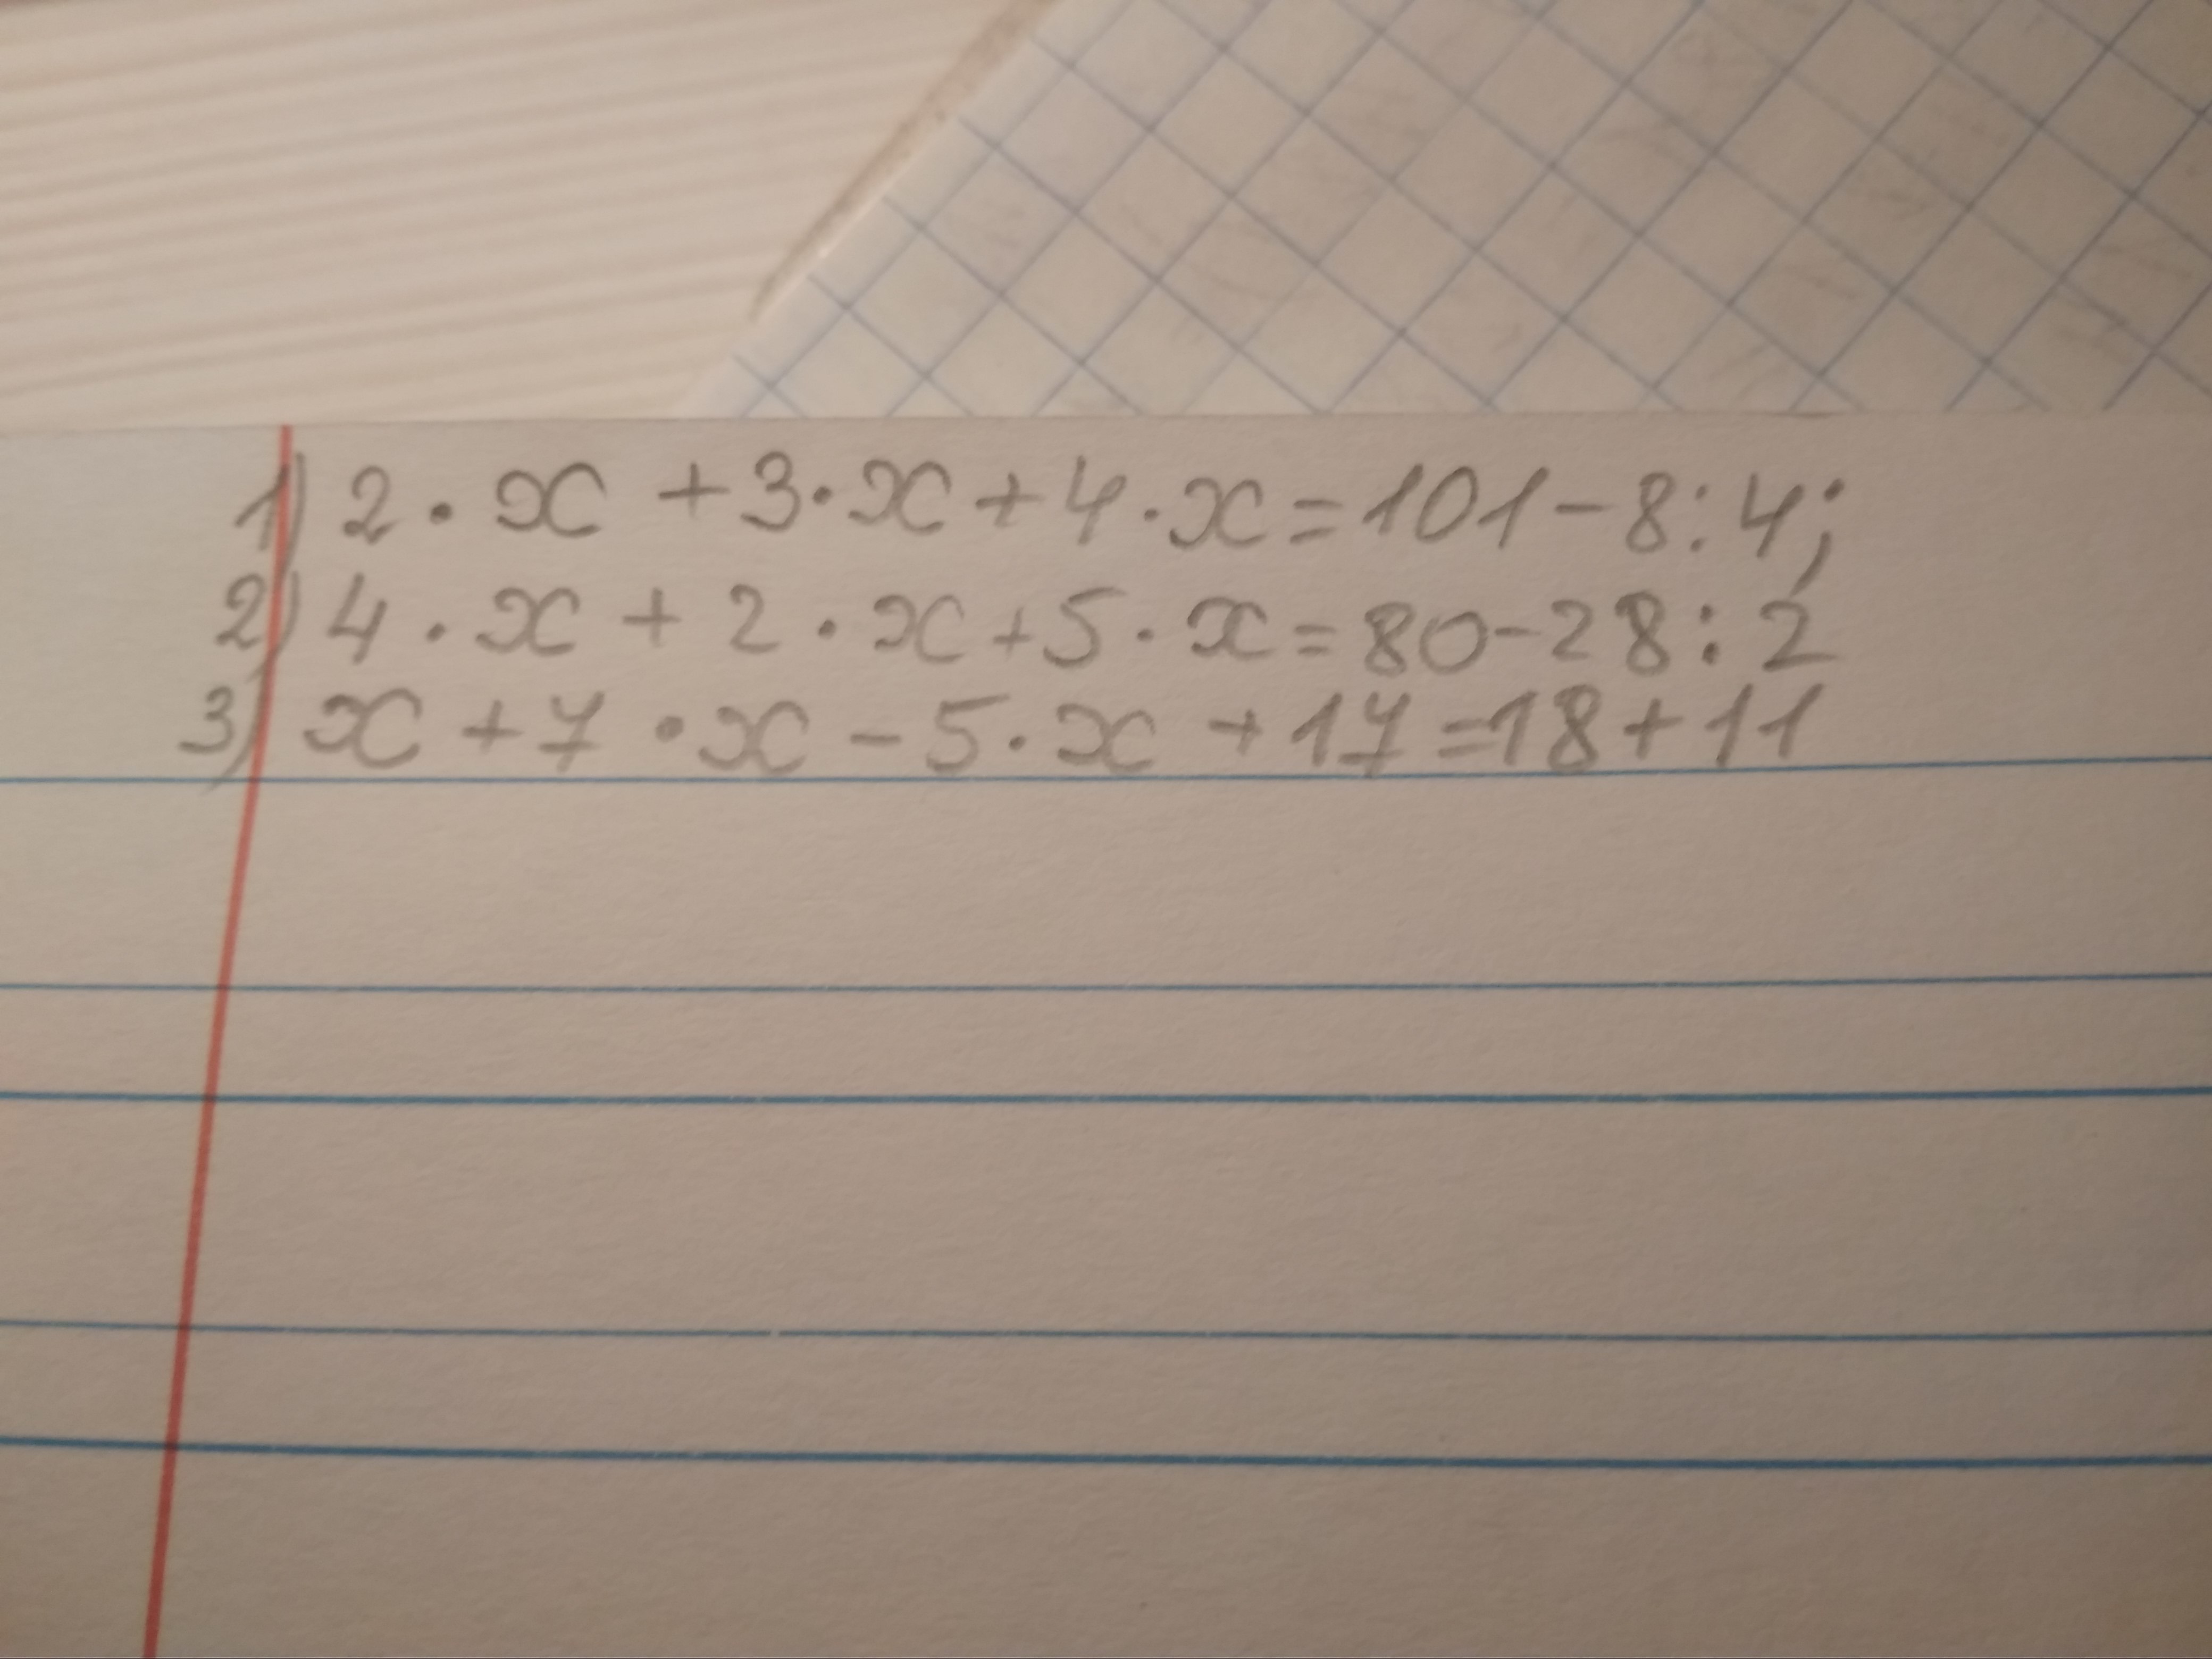 1) 2 · x + 3 · x + 4 · x = 101 - 8 : 4;
2) 4 · x + 2 · x + 5 · x = 80 - 28 : 2
3) x + 7 · x - 5 · x + 17 = 18 + 11